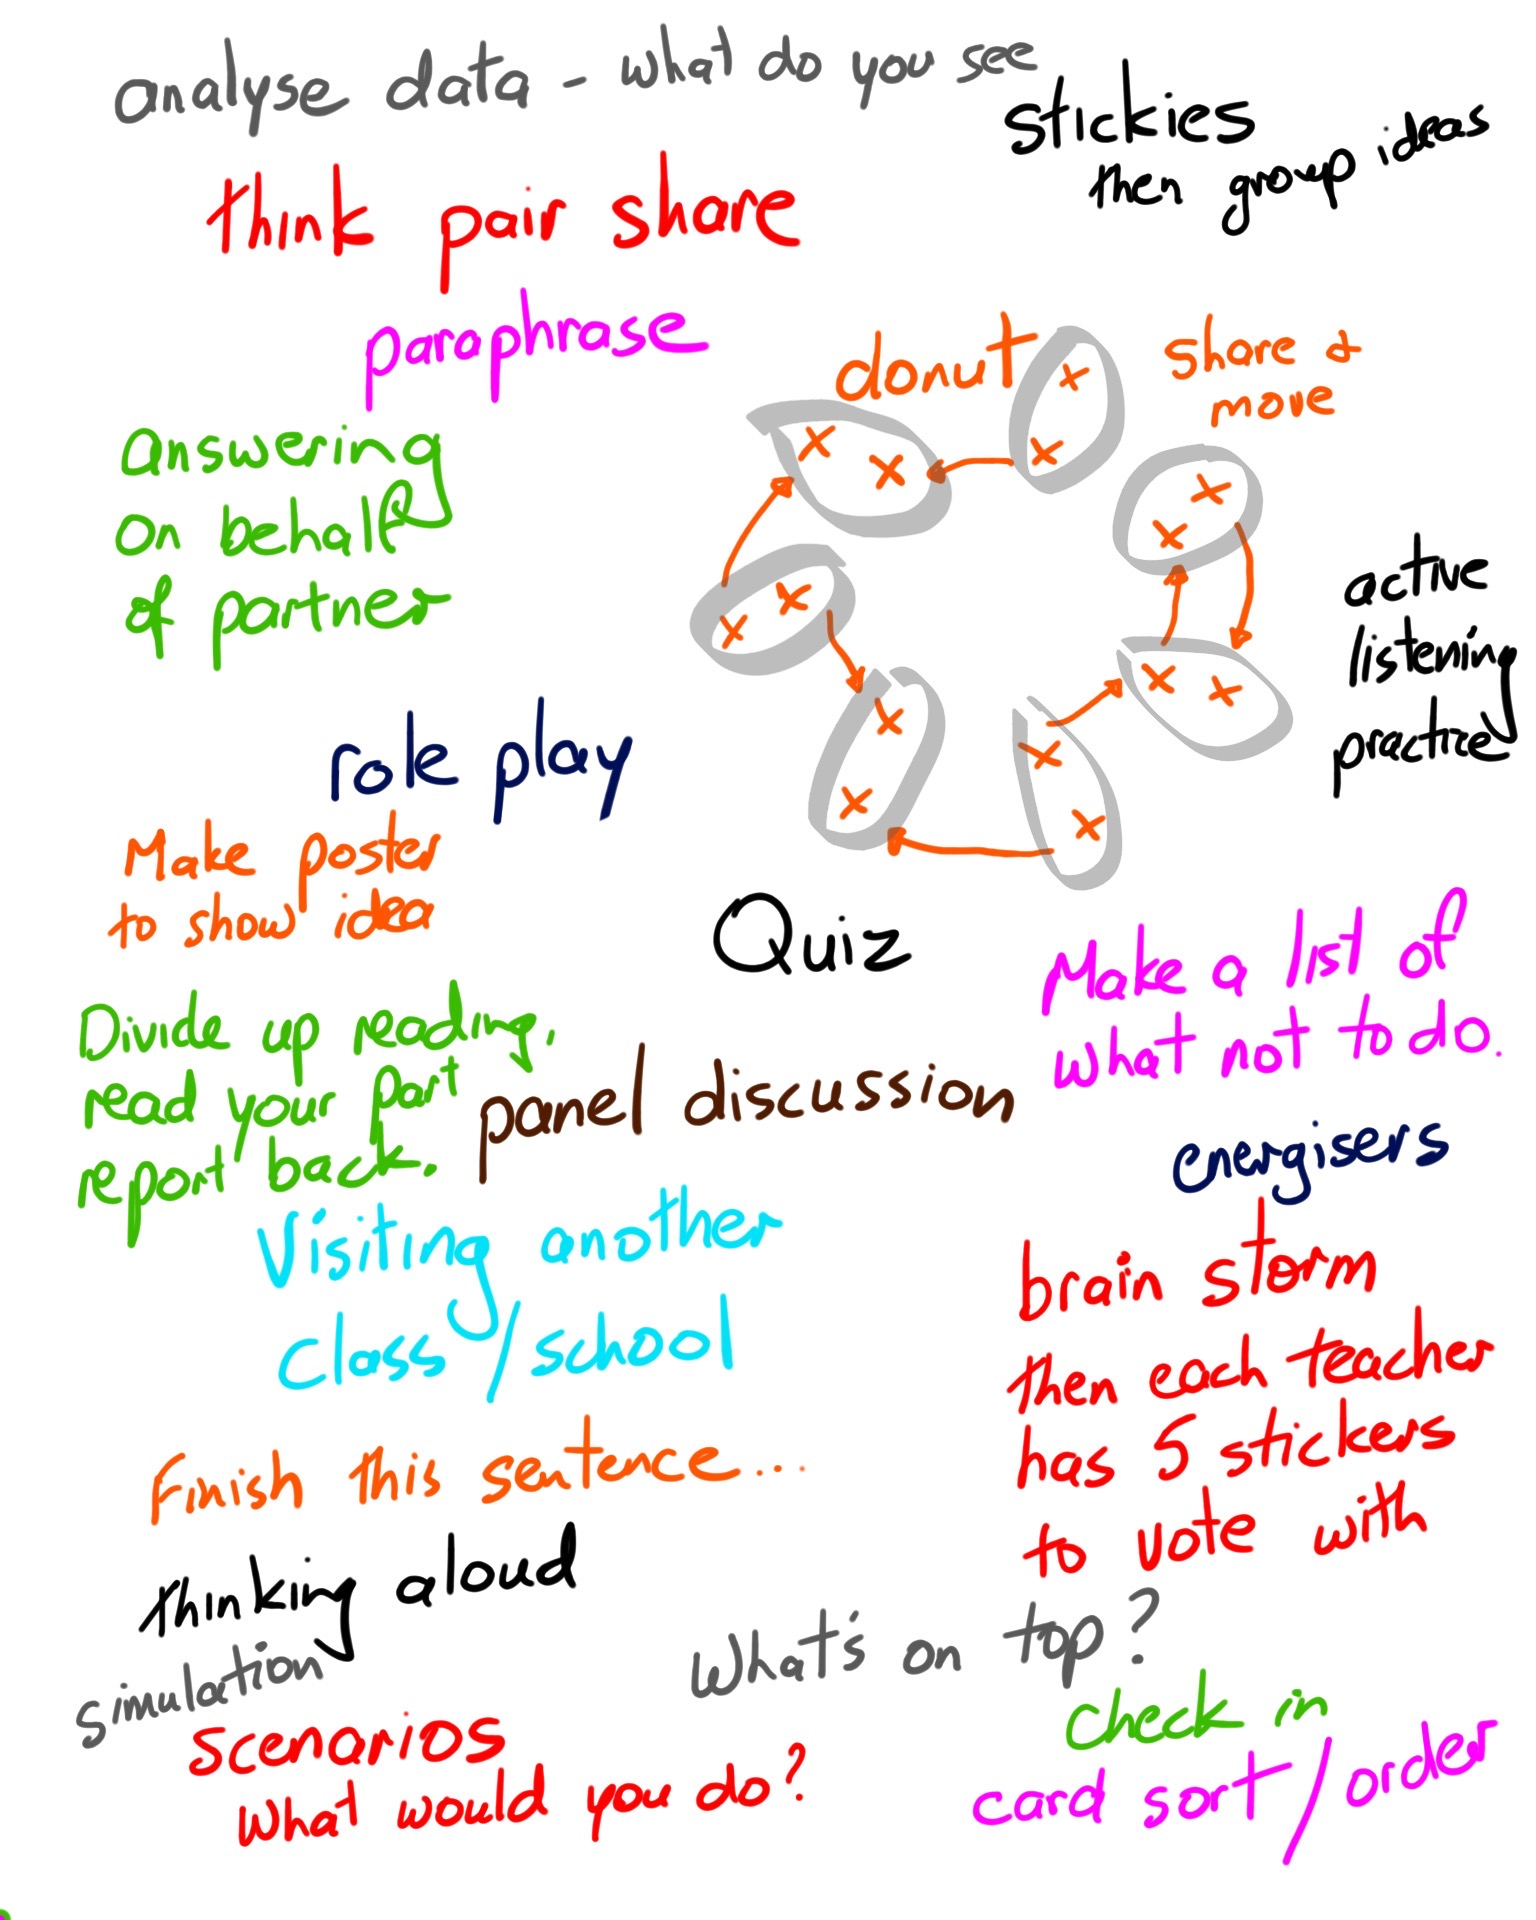 analyse data - what do you see
stickies
then group ideas
think pair share
paraphrase
donut
share &
move
answering
on behalf
of partner
active
listening
practice
role play
Make poster
to show idea
Quiz
Make a list of
what not to do.
Divide up reading.
read your part
report back.
panel discussion
energisers
Visiting another
class/school
brain storm
then each teacher
has 5 stickers
to vote with
Finish this sentence...
thinking aloud
simulation
What's on top?
scenarios
What would you do?
check in
card sort/order